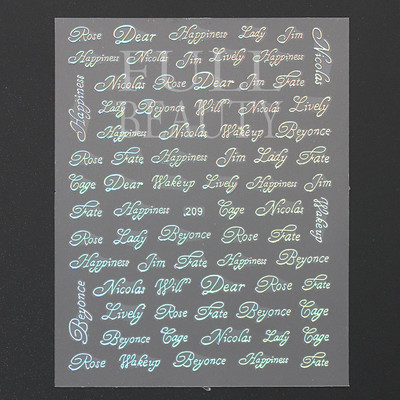 Rose Dear Happiness Lady Jim Nicolas
Happiness Nicolas Jim Lively Happiness
Happiness Nicolas Rose Dear Jim Fate
Lady Beyonce Will Nicolas Lively
Happiness Nicolas Wakeup Beyonce
Rose Fate Happiness Jim Lady Fate
Cage Dear Wakeup Lively Happiness Jim
Fate Happiness 209 Cage Nicolas Wakeup
Rose Lady Beyonce Rose Fate
Happiness Jim Fate Happiness Beyonce
Beyonce Nicolas Will Dear Rose
Lively Rose Fate Beyonce Cage
Beyonce Cage Nicolas Lady Cage
Rose Wakeup Beyonce Happiness Fate
FULL
BEAUTY